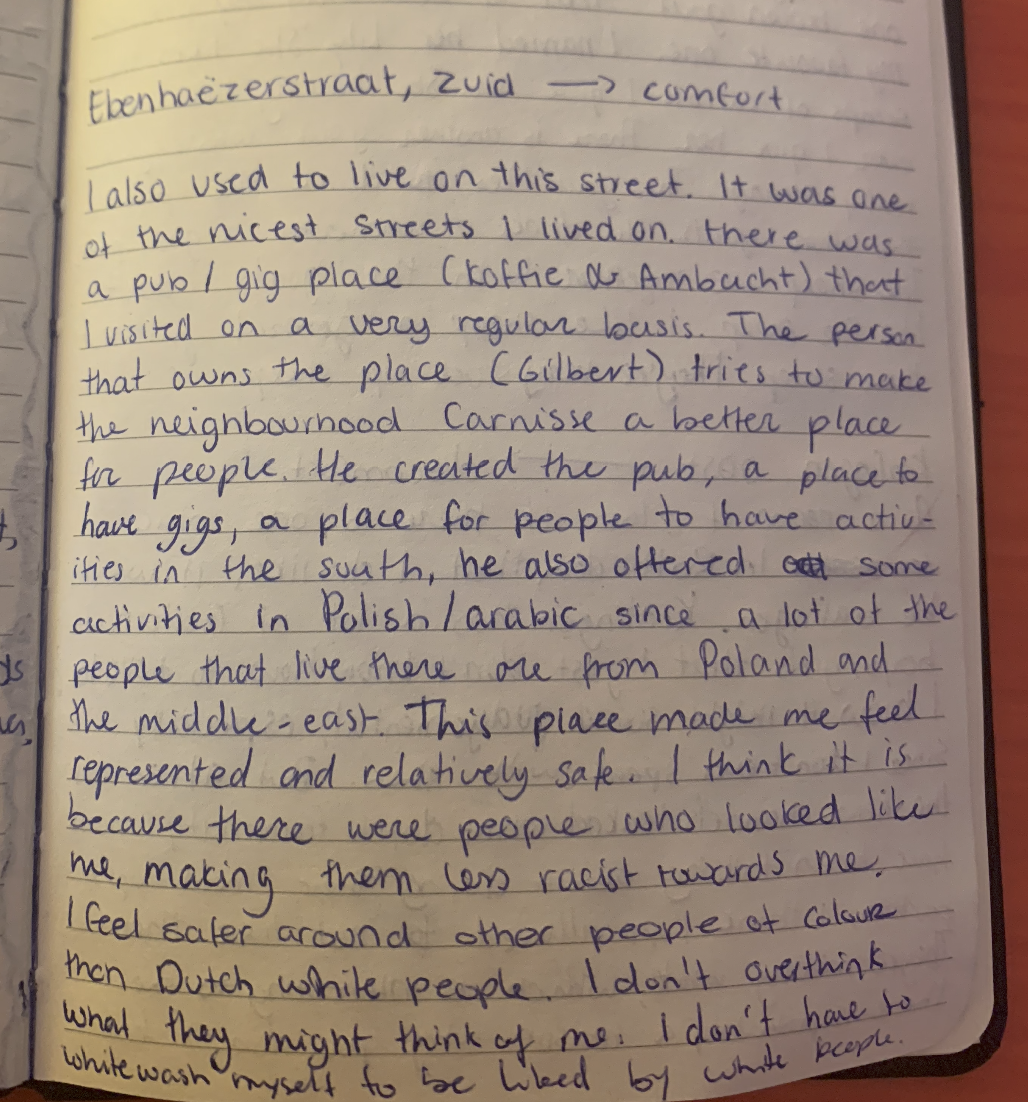 Ebenhaëzerstraat, Zuid → comfort
I also used to live on this street. It was one
of the nicest streets I lived on. there was
a pub / gig place (Koffie & Ambacht) that
I visited on a very regular basis. The person
that owns the place (Gilbert) tries to make
the neighbourhood Carnisse a better place
for people. He created the pub, a place to
have gigs, a place for people to have activ-
ities in the south, he also offered some
activities in Polish/arabic since a lot of the
people that live there are from Poland and
the middle-east. This place made me feel
represented and relatively safe. I think it is
because there were people who looked like
me, making them less racist towards me.
I feel safer around other people of colour
then Dutch white people. I don't overthink
what they might think of me. I don't have to
whitewash myself to be liked by white people.